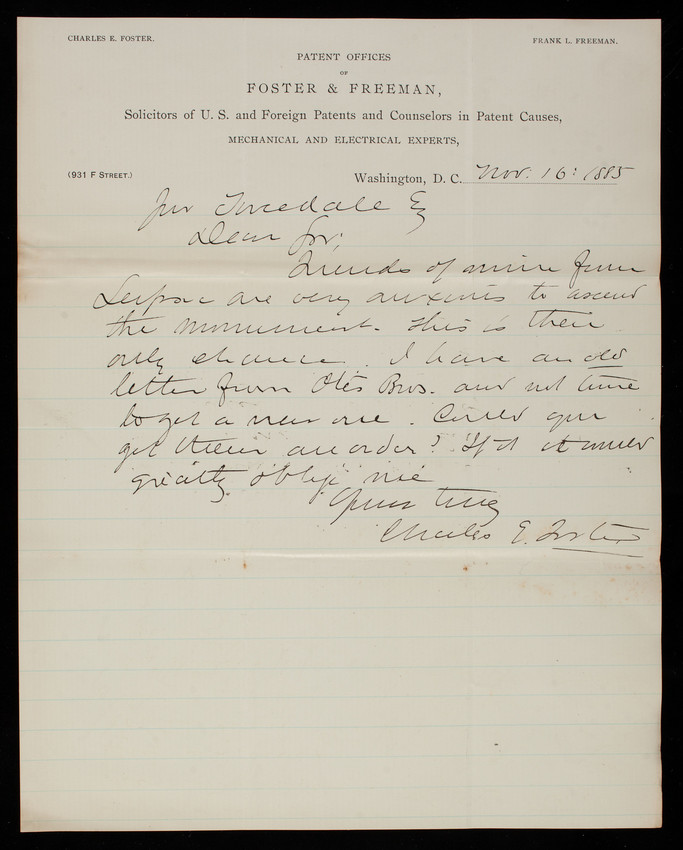 CHARLES E. FOSTER. FRANK L. FREEMAN.
PATENT OFFICES
OF
FOSTER & FREEMAN,
Solicitors of U. S. and Foreign Patents and Counselors in Patent Causes,
MECHANICAL AND ELECTRICAL EXPERTS,
(931 F STREET.) Washington, D. C. Nov. 16: 1885
Jno Tweedale Esq
Dear Sir;
Friends of mine from
are very anxious to ascend
the monument. This is their
only chance. I have an old
letter from Otis Bros. and not time
to get a new one. Could you
get them an order? If it would
greatly oblige me
Yours truly
Charles E. Foster